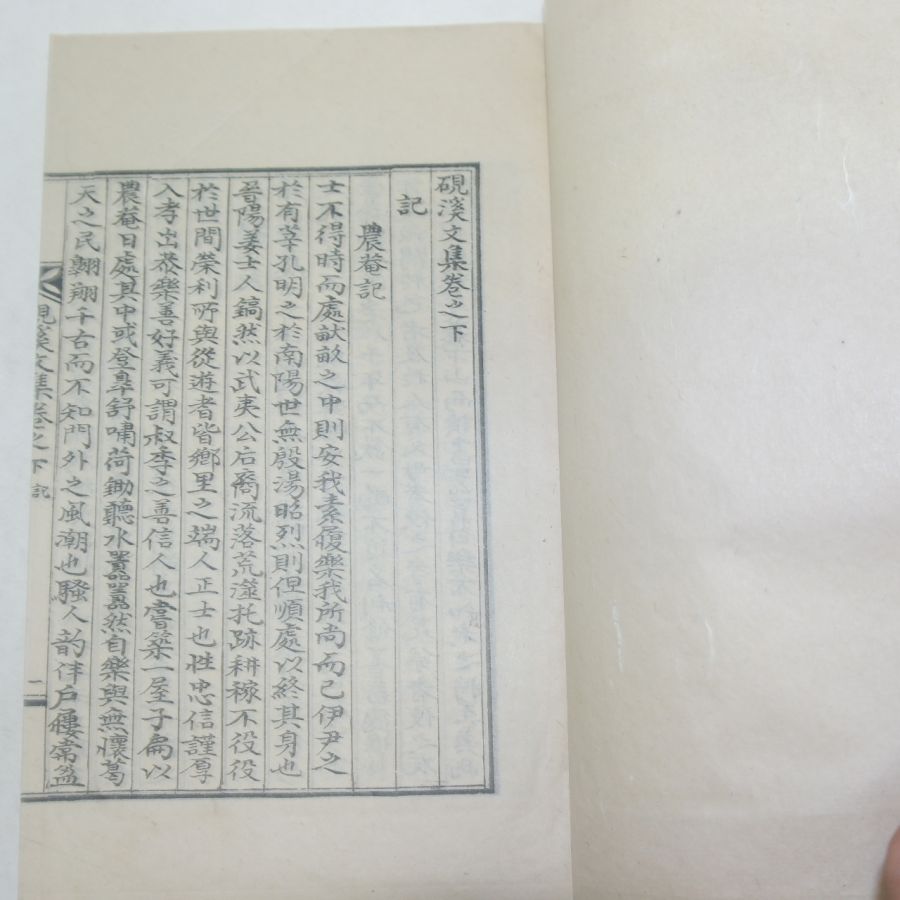 硯溪文集卷之下
記
農菴記
士不得時而處畎畝之中則安我素履樂我所尚而已伊尹之
於有莘孔明之於南陽世無殷湯昭烈則俚順處以終其身也
晉陽姜士人鎬然以武夷公后裔流落荒澨托跡耕稼不役役
於世間榮利所與從遊者皆鄉里之端人正士也性忠信謹厚
入孝出恭樂善好義可謂叔季之善信人也嘗築一屋子扁以
農菴日處其中或登皐舒嘯荷鋤聽水囂囂然自樂與無懷葛
天之民翺翔千古而不知門外之風潮也騷人韵伴戶屨常盈
硯溪文集卷之下 記 一